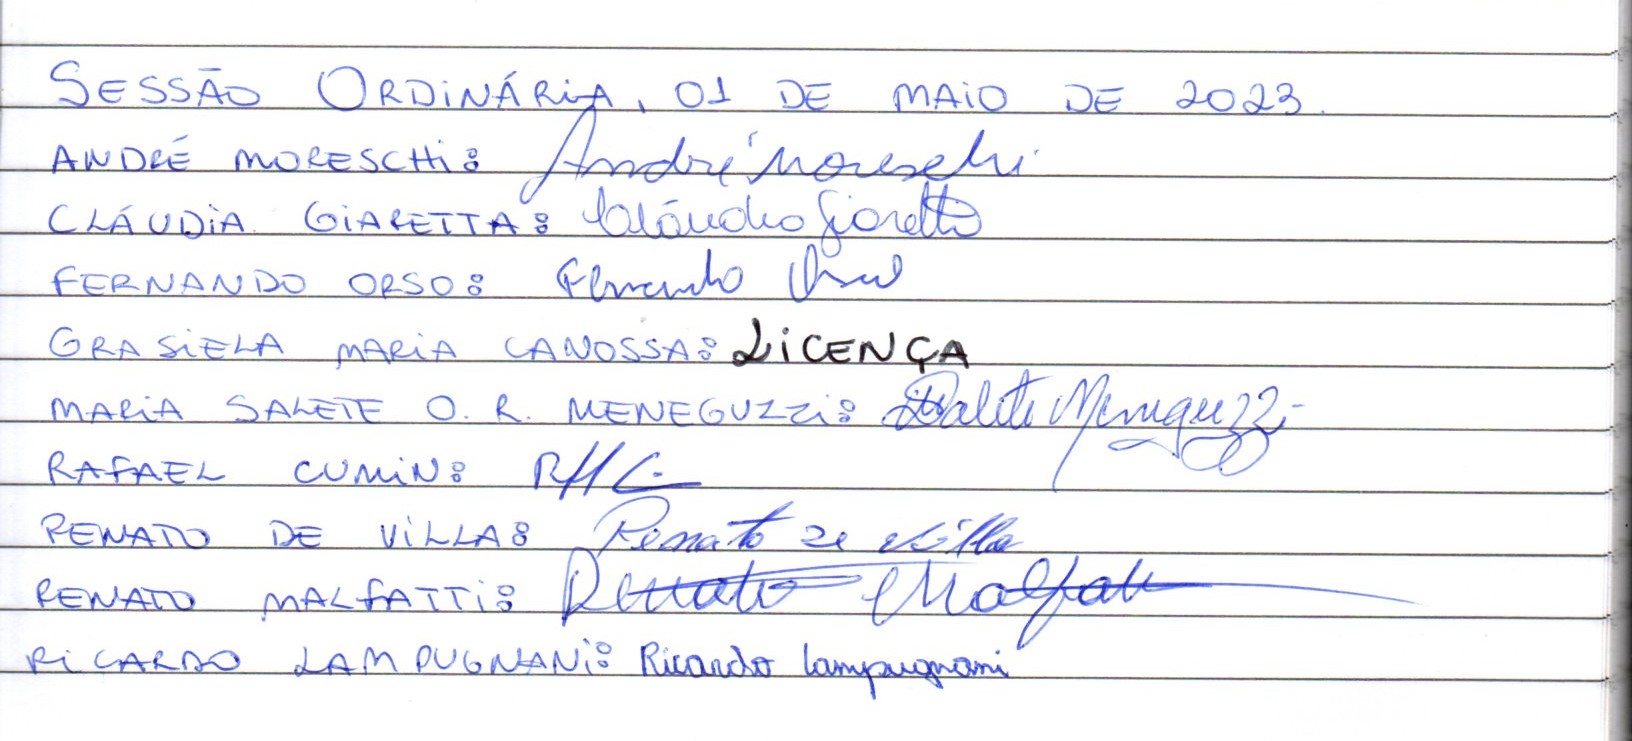 SESSÃO ORDINÁRIA, 01 DE MAIO DE 2023.
ANDRÉ MORESCHI: André Moreschi
CLÁUDIA GIARETTA: Cláudia Giaretta
FERNANDO ORSO: Fernando Orso
GRASIELA MARIA CANOSSA: LICENÇA
MARIA SALETE O. R. MENEGUZZI: Salete Meneguzzi
RAFAEL CUMIN:
RENATO DE VILLA: Renato de Villa
RENATO MALFATTI: Renato Malfatti
RICARDO LAMPUGNANI: Ricardo Lampugnani